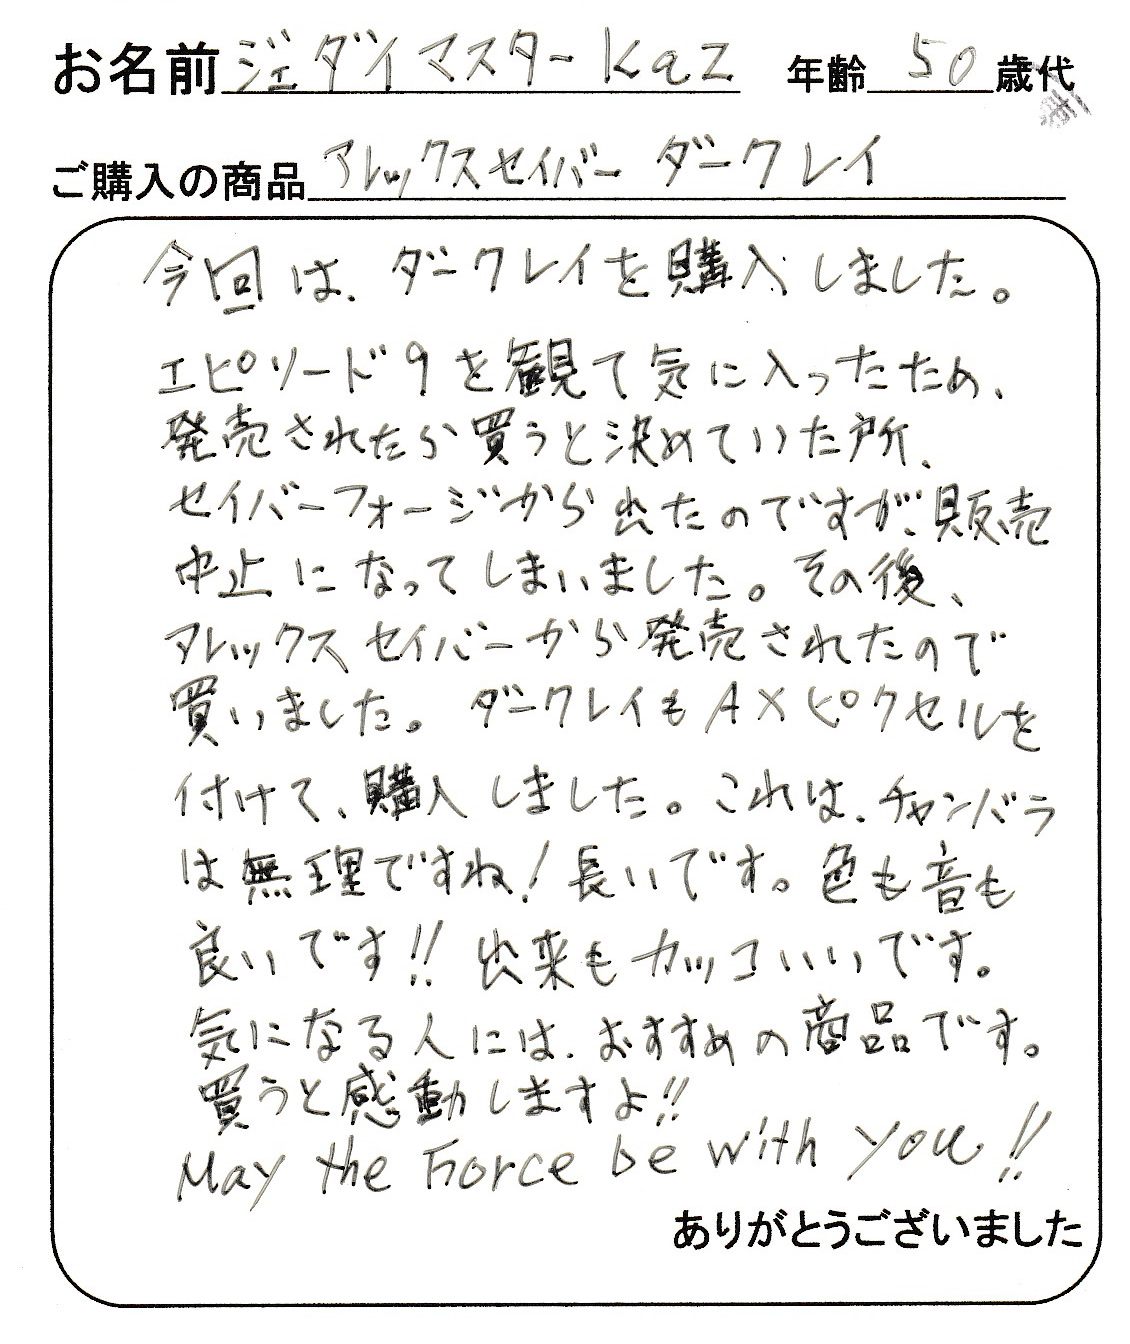 お名前 ジェダイマスター Kaz 年齢 50 歳代
ご購入の商品 アレックスセイバー ダークレイ
今回は、ダークレイを購入しました。
エピソード9を観て気に入ったため、
発売されたら買うと決めていた所、
セイバーフォージから出たのですが、販売
中止になってしまいました。その後、
アレックスセイバーから発売されたので
買いました。ダークレイもAXピクセルを
付けて、購入しました。これは、チャンバラ
は無理ですね！長いです。色も音も
良いです!! 出来もカッコいいです。
気になる人には、おすすめの商品です。
買うと感動しますよ!!
May the Force be with you!!
ありがとうございました